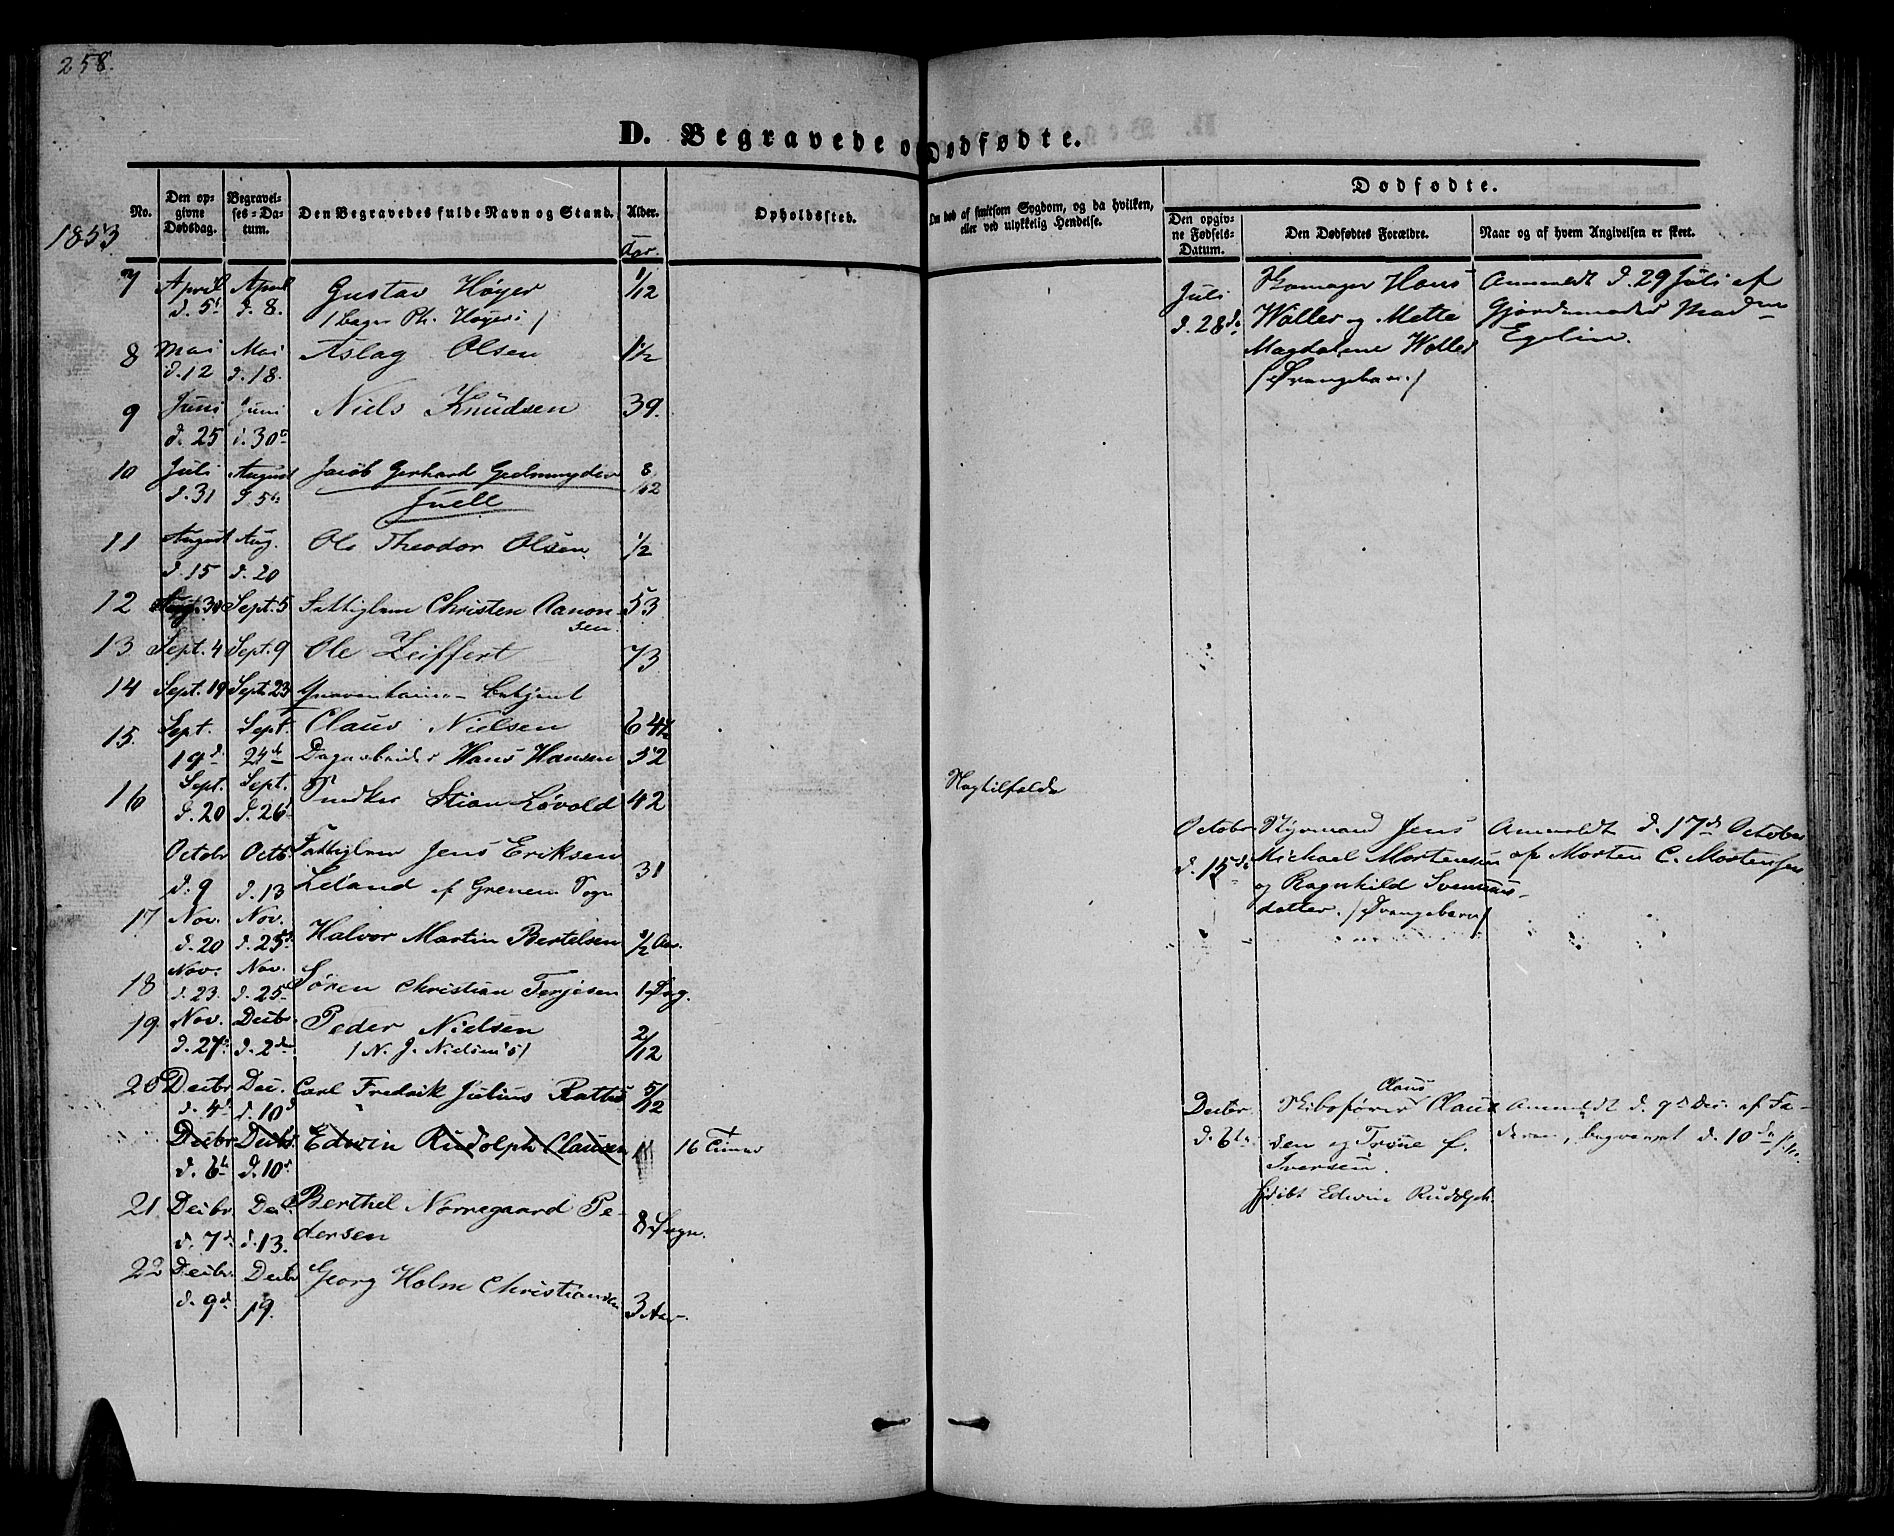 258.
D. Begravede og Dødfødte.
No.
Den opgivne Dødsdag.
Begravelses-Datum.
Den Begravedes fulde Navn og Stand.
Alder.
Opholdssted.
Om død af smitsom Sygdom, og da hvilken, eller ved ulykkelig Hendelse.
Dødfødte.
Den opgivne Fødsels-Datum.
Den Dødfødtes Forældre.
Naar og af hvem Angivelsen er skeet.
1853
Aar.
7 April d. 5 April d. 8. Gustav Høyer 1/12
8 Mai d. 12 Mai d. 18. Aslag Olsen 1½
9 Juni d. 25 Juni d. 30 Niels Knudsen 39.
10 Juli d. 31 August d. 5 Jacob Gerhard Juell 8/12
11 August d. 15 Aug. d. 20 Ole Theodor Olsen ½
12 Sept. 5 Fattiglem Christen Aanonsen 53
13 Sept. 4 Sept. 9 Ole Zeiffert 73
14 Sept. 19 Sept. 23
Claus Nielsen
15. Sept. 19 Sept. 24 Dagarbeider Hans Hansen 52
16 Sept. d. 20 Sept. d. 26 Snedker Stian Løvold 42
Octobr d. 9 Octb. d. 13 Fattiglem Jens Eriksen
Leland af Grenem Sogn 31
17 Nov. d. 20 Nov. d. 25 Halvor Martin Bertelsen ½ Aar.
18 Nov. d. 23. Nov. d. 25 Søren Christian Terjesen 1 Dag.
19 Nov. d. 27 Decbr d. 2 Peder Nielsen 2/12
/N. J. Nielsen's/
20 Decbr d. 4 Dec. d. 10 Carl Fredrik Julius 5/12
Decbr d. 6 Decbr. d. 10 Edwin Rudolph Clausen 16 Timer
21 Decbr d. 7 Dec d. 13. Berthel Nørregaard Pedersen 8 Dage.
22 Decbr. d. 9 Decbr 19. Georg Holm Christiansen 3 Aar.
Juli d. 28 Skomager Hans
Waller og Mette
Magdalene Waller
/Drengebarn/
Anmeldt d. 29 Juli af
Gjordemoder Madm
Egelin.
Octobr d. 15 Styrmand Jens
Michael Mortensen
og Ragnhild Svennesdatter. /Drengebarn/
Anmeldt d. 17 October
af Morten C. Mortensen
Decbr d. 6 Skibsfører Claus
Iversen.
døbt Edwin Rudolph.
Anmeldt d. 9 Dec. af Faderen, begravet d. 10